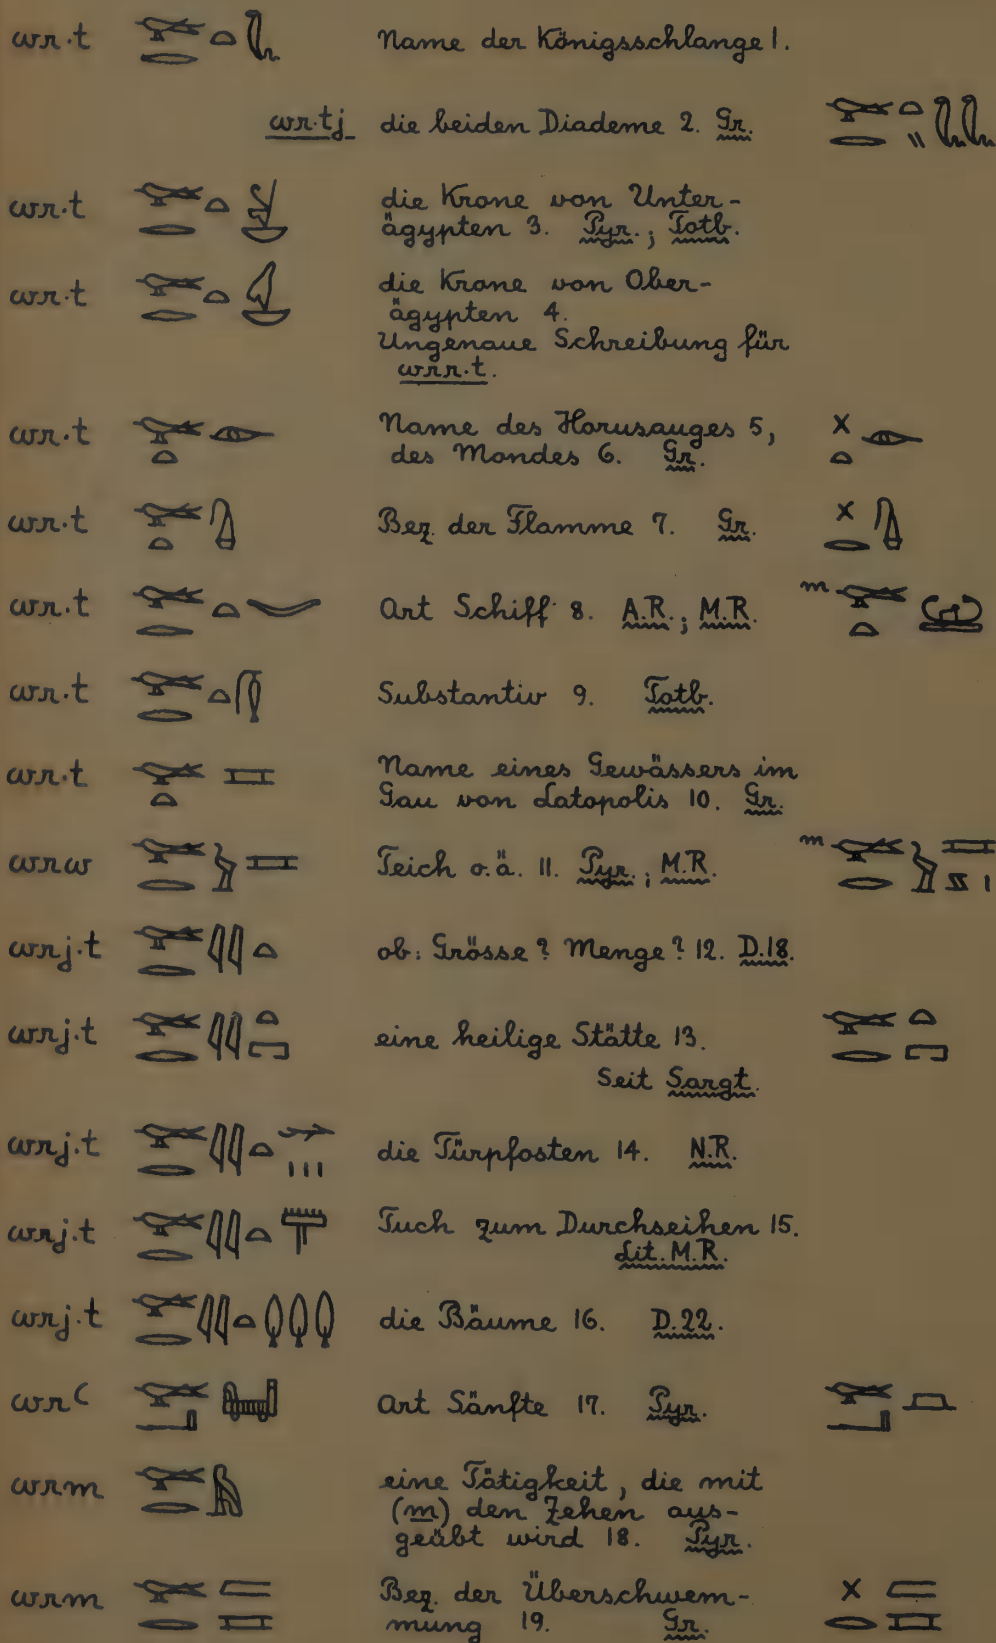 wr·t Name der Königsschlange 1.
wr·tj die beiden Diademe 2. Gr.
wr·t die Krone von Unter-
ägypten 3. Pyr.; Totb.
wr·t die Krone von Ober-
ägypten 4.
Ungenaue Schreibung für
wrr·t.
wr·t Name des Horusauges 5,
des Mondes 6. Gr.
wr·t Bez. der Flamme 7. Gr.
wr·t Art Schiff 8. A.R.; M.R. m
wr·t Substantiv 9. Totb.
wr·t Name eines Gewässers im
Gau von Latopolis 10. Gr.
wrw Teich o.ä. 11. Pyr.; M.R. m
wrj·t ob: Grösse? Menge? 12. D.18.
wrj·t eine heilige Stätte 13.
Seit Sargt.
wrj·t die Türpfosten 14. N.R.
wrj·t Tuch zum Durchseihen 15.
Lit. M.R.
wrj·t die Bäume 16. D.22.
wrꜥ Art Sänfte 17. Pyr.
wrm eine Tätigkeit, die mit
(m) den Zehen aus-
geübt wird 18. Pyr.
wrm Bez. der Überschwem-
mung 19. Gr.